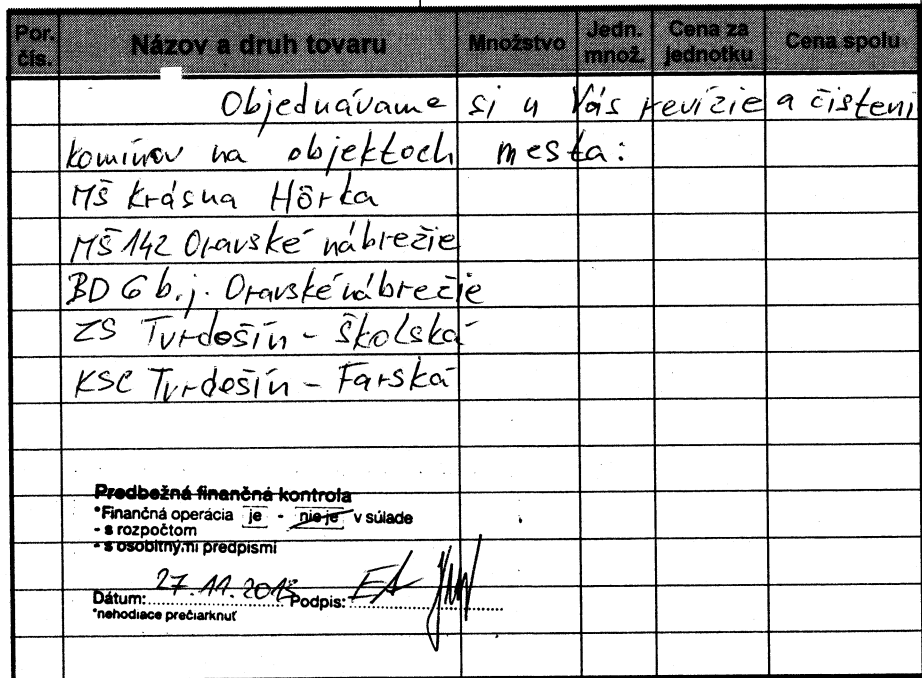 Por. čís. Názov a druh tovaru Množstvo Jedn. množ. Cena za jednotku Cena spolu
Objednávame si u Vás revízie a čisteni
komínov na objektoch mesta:
MŠ Krásna Hôrka
MŠ 142 Oravské nábrežie
BD 6 b.j. Oravské nábrežie
ZS Tvrdošín - Školská
KSC Tvrdošín - Farská
Predbežná finančná kontrola
*Finančná operácia je - nie je v súlade
- s rozpočtom
- s osobitnými predpismi
Dátum: 27.11.2013 Podpis:
*nehodiace prečiarknuť